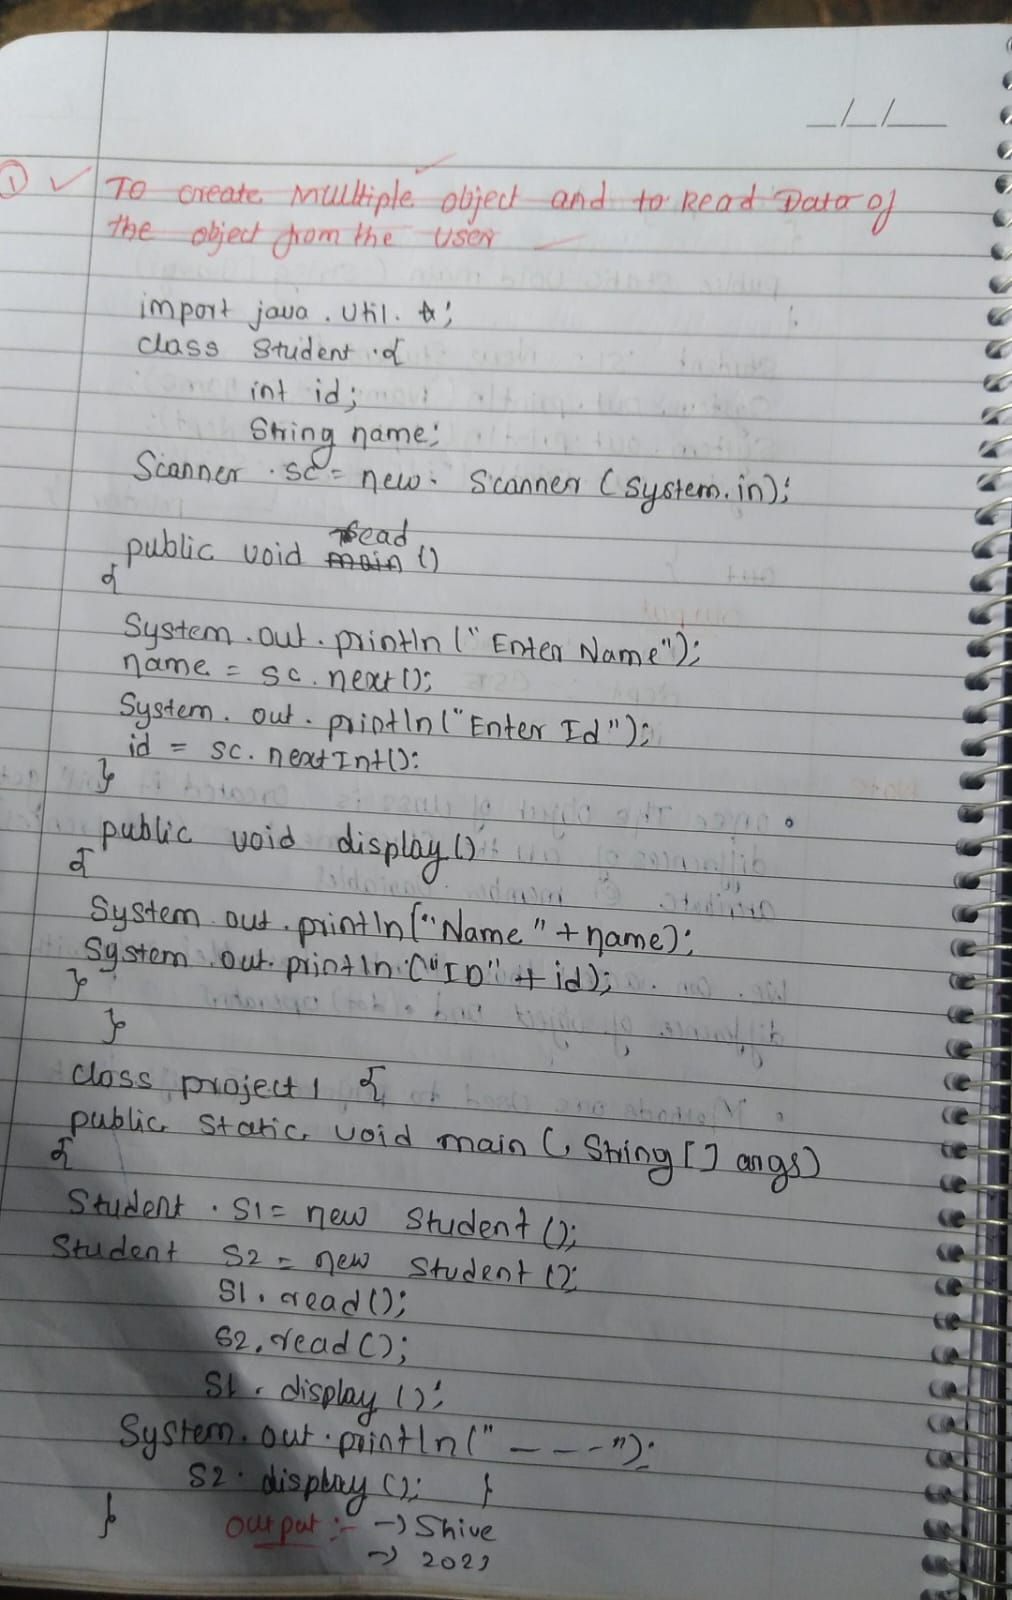 _/_/__
① ✓ To create Multiple object and to Read Data of
the object from the User
import java.util.*;
class Student {
int id;
String name;
Scanner sc = new Scanner (System.in);
public void read ()
{
System.out.println ("Enter Name");
name = sc.next();
System.out.println("Enter Id");
id = sc.nextInt();
}
public void display()
{
System.out.println("Name"+name);
System.out.println("ID"+id);
}
}
class project1 {
public static void main (String [] args)
{
Student S1 = new Student ();
Student S2 = new Student ();
S1.read();
S2.read();
S1.display ();
System.out.println("---");
S2.display (); }
}
output :- → Shive
→ 2023